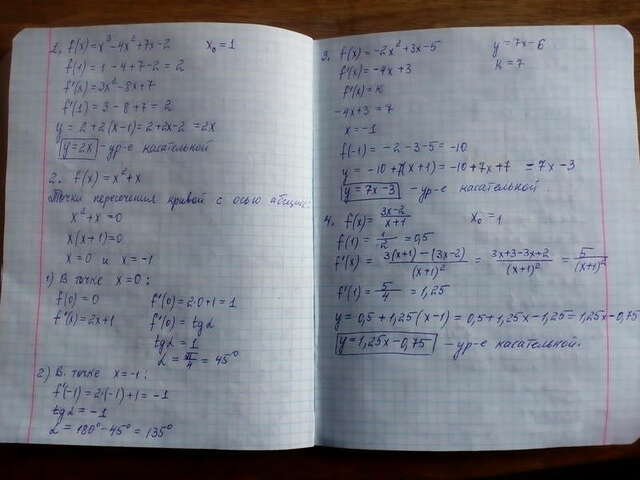 1. f(x)=x³-4x²+7x-2 x₀=1
f(1)=1-4+7-2=2
f'(x)=3x²-8x+7
f'(1)=3-8+7=2
y=2+2(x-1)=2+2x-2=2x
y=2x - ур-е касательной
2. f(x)=x²+x
Точки пересечения кривой с осью абцисс:
x²+x=0
x(x+1)=0
x=0 и x=-1
1) В точке x=0:
f(0)=0 f'(0)=2·0+1=1
f'(x)=2x+1 f'(0)=tgα
tgα=1
α=π/4=45°
2) В точке x=-1:
f'(-1)=2·(-1)+1=-1
tgα=-1
α=180°-45°=135°
3. f(x)=-2x²+3x-5 y=7x-6
f'(x)=-4x+3 k=7
f'(x)=k
-4x+3=7
x=-1
f(-1)=-2-3-5=-10
y=-10+7(x+1)=-10+7x+7=7x-3
y=7x-3 - ур-е касательной.
4. f(x)=(3x-2)/(x+1) x₀=1
f(1)=1/2=0,5
f'(x)=(3(x+1)-(3x-2))/(x+1)²=(3x+3-3x+2)/(x+1)²=5/(x+1)²
f'(1)=5/4=1,25
y=0,5+1,25(x-1)=0,5+1,25x-1,25=1,25x-0,75
y=1,25x-0,75 - ур-е касательной.